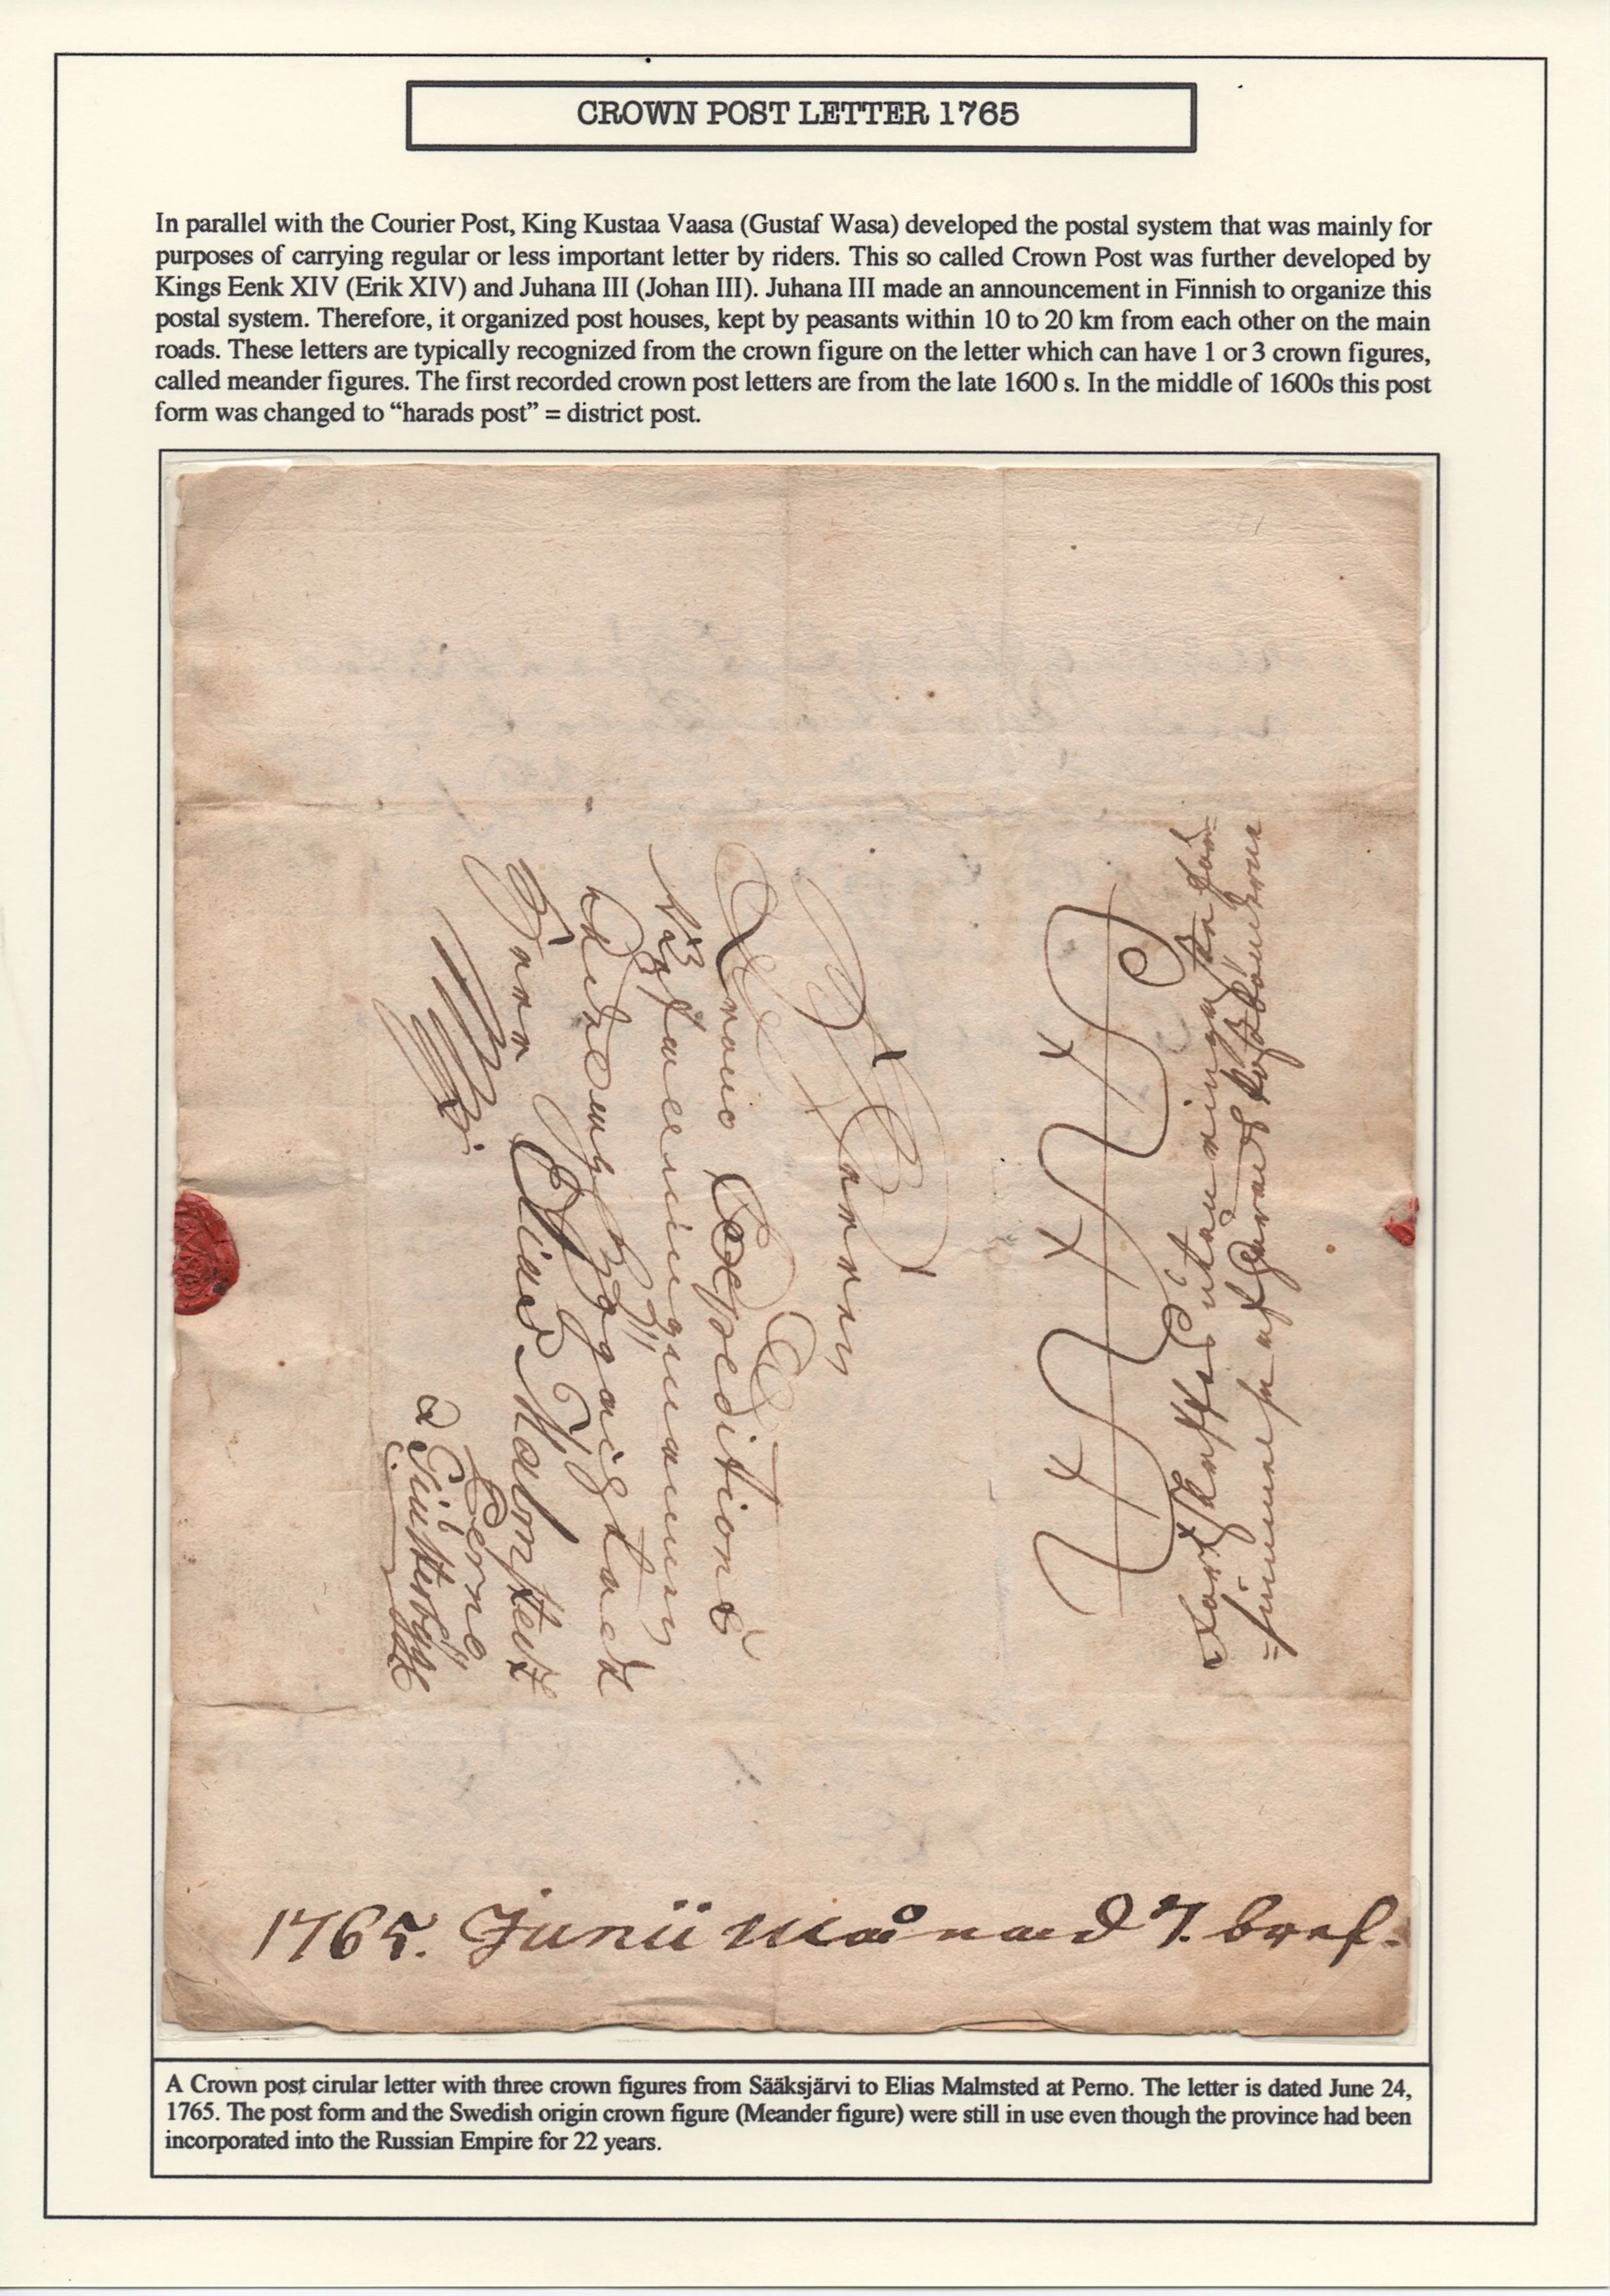 CROWN POST LETTER 1765
In parallel with the Courier Post, King Kustaa Vaasa (Gustaf Wasa) developed the postal system that was mainly for
purposes of carrying regular or less important letter by riders. This so called Crown Post was further developed by
Kings Eenk XIV (Erik XIV) and Juhana III (Johan III). Juhana III made an announcement in Finnish to organize this
postal system. Therefore, it organized post houses, kept by peasants within 10 to 20 km from each other on the main
roads. These letters are typically recognized from the crown figure on the letter which can have 1 or 3 crown figures,
called meander figures. The first recorded crown post letters are from the late 1600 s. In the middle of 1600s this post
form was changed to “harads post” = district post.
Crono Expedition
Herr Elias Malmstedt
Perno
1765. Junii Månad 7. bref.
A Crown post cirular letter with three crown figures from Sääksjärvi to Elias Malmsted at Perno. The letter is dated June 24,
1765. The post form and the Swedish origin crown figure (Meander figure) were still in use even though the province had been
incorporated into the Russian Empire for 22 years.